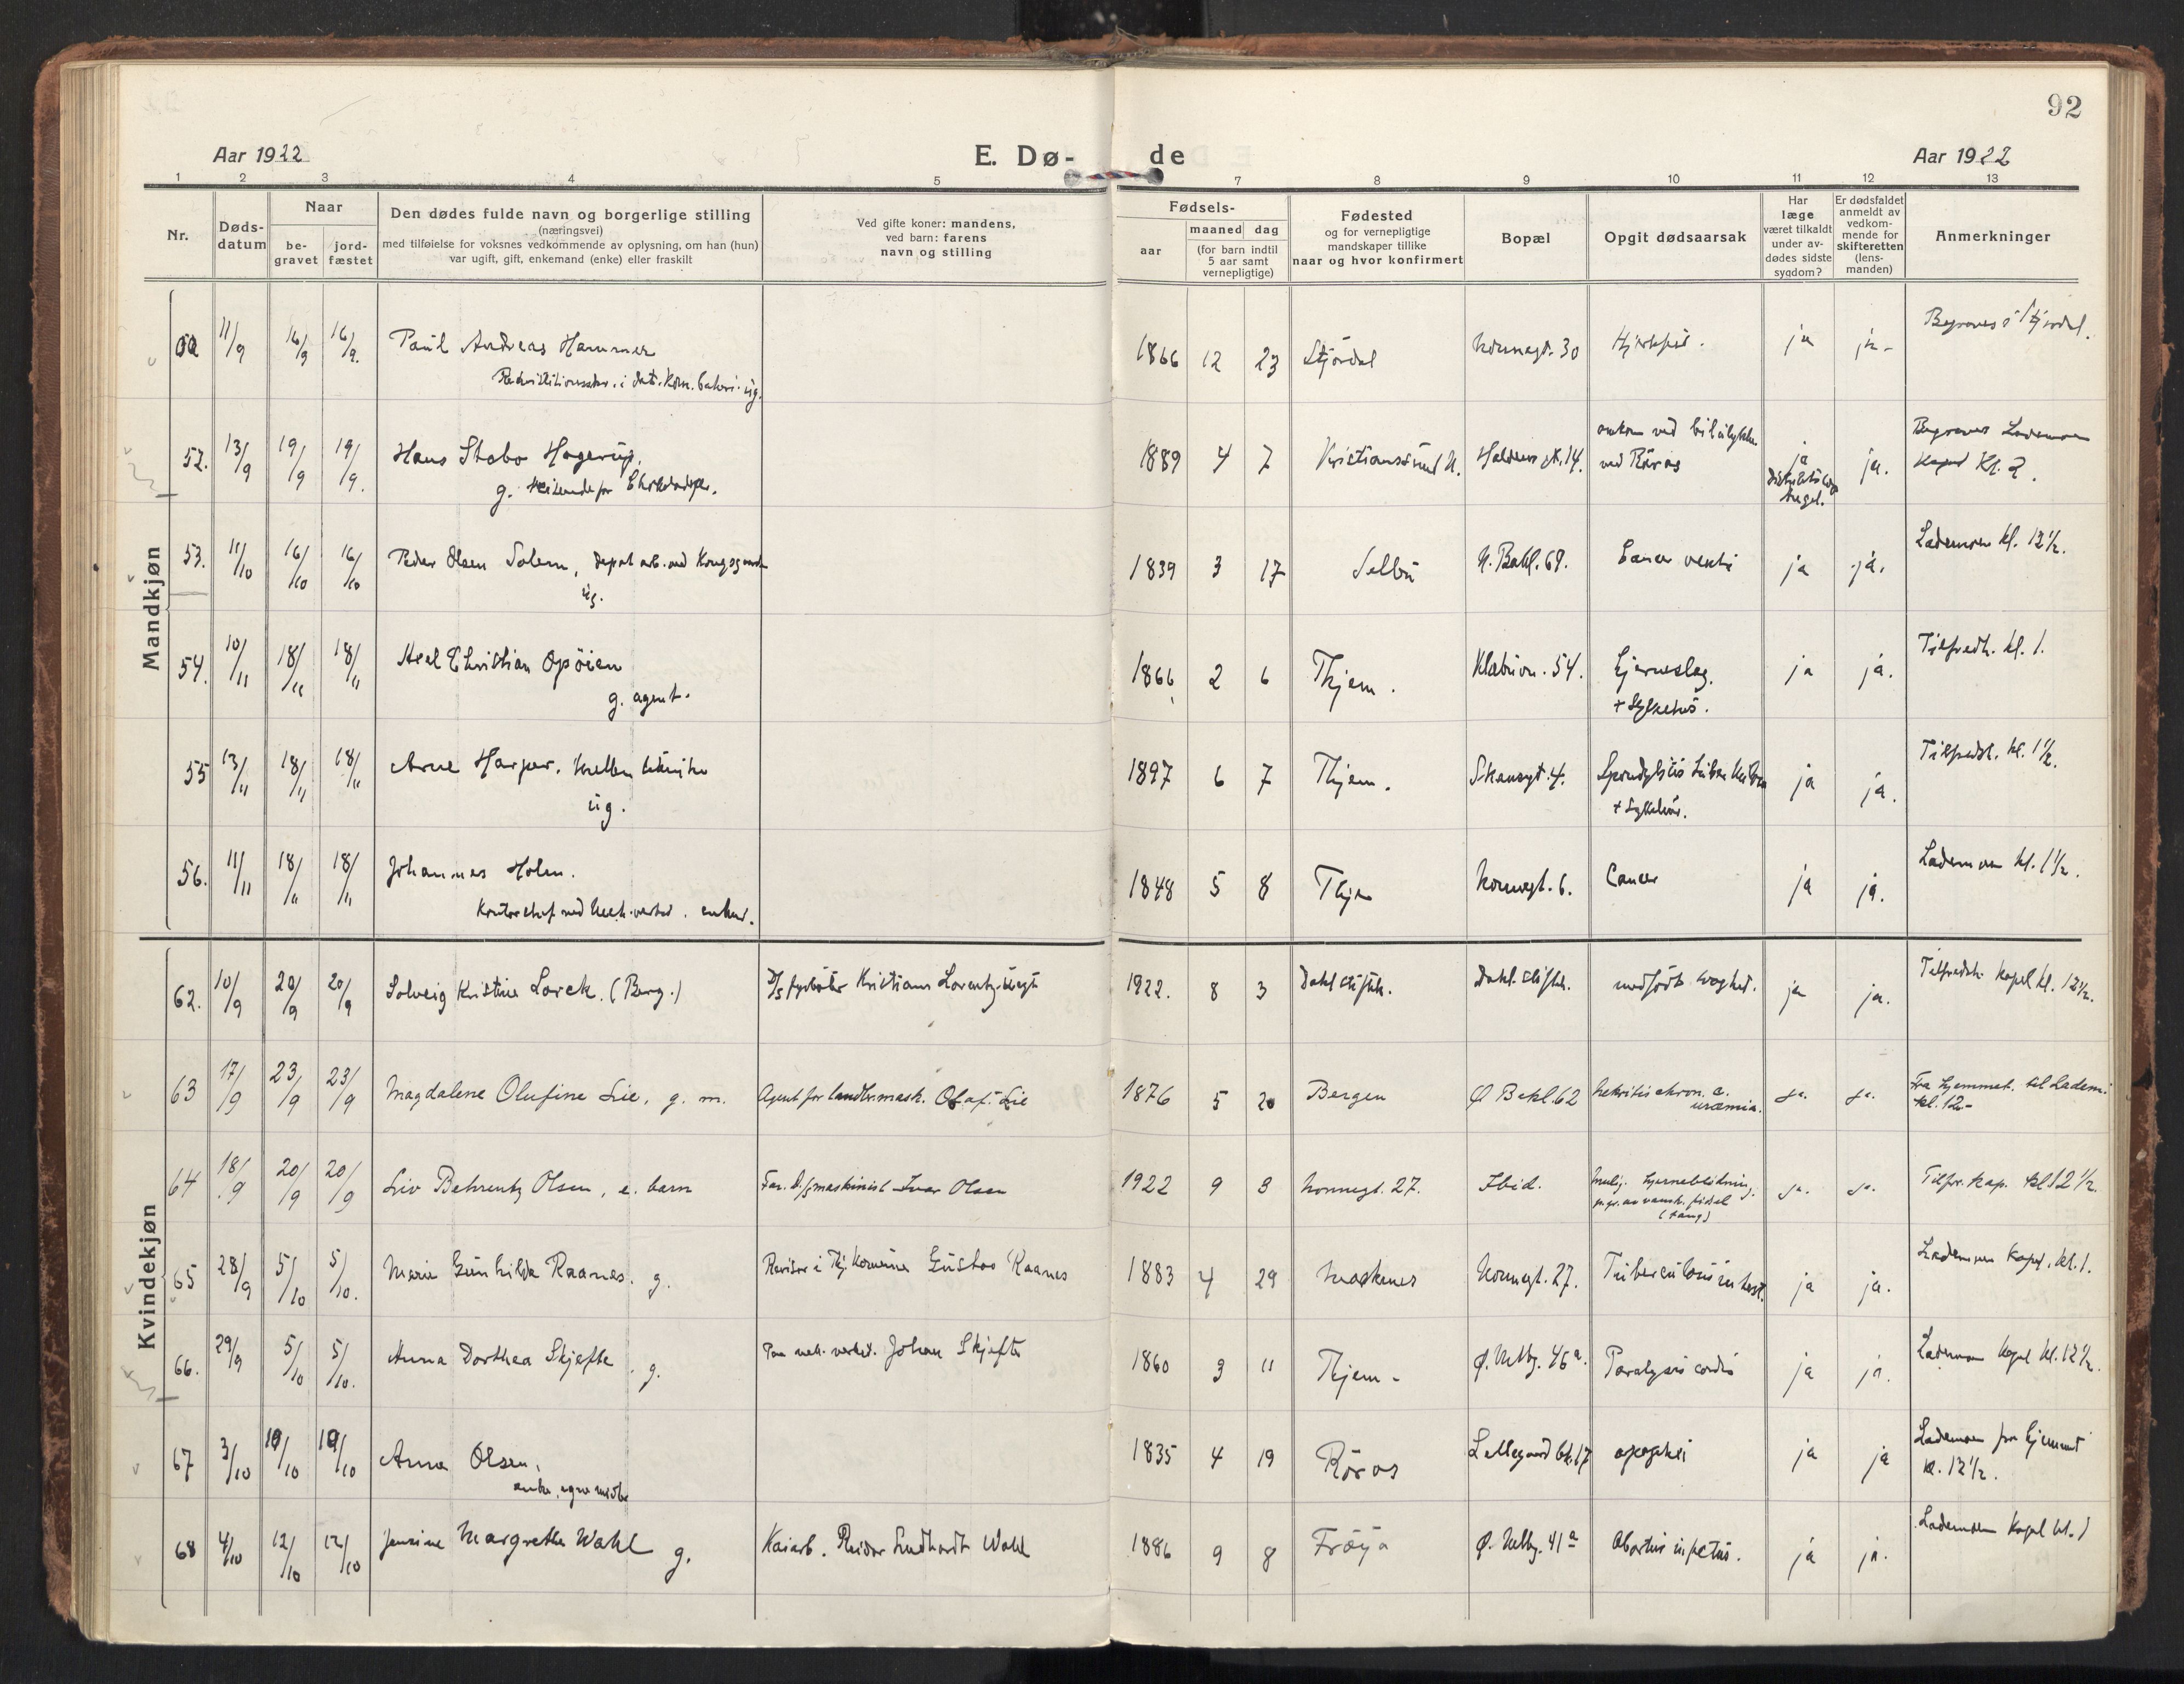 92
Aar 1922
E. Dø-
de
Aar 1922
1 2 3 4 5 7 8 9 10 11 12 13
Nr.
Døds-
datum
Naar
be-
gravet
jord-
fæstet
Den dødes fulde navn og borgerlige stilling
(næringsvei)
med tilføielse for voksnes vedkommende av oplysning, om han (hun)
var ugift, gift, enkemand (enke) eller fraskilt
Ved gifte koner: mandens,
ved barn: farens
navn og stilling
Fødsels-
aar
maaned dag
(for barn indtil
5 aar samt
vernepligtige)
Fødested
og for vernepligtige
mandskaper tillike
naar og hvor konfirmert
Bopæl
Opgit dødsaarsak
Har
læge
været tilkaldt
under av-
dødes sidste
sygdom?
Er dødsfaldet
anmeldt av
vedkom-
mende for
skifteretten
(lens-
manden)
Anmerkninger
Mandkjøn
11/9 16/9 16/9. Paul Andreas Hammer 1866 12 23 Stjørdal Nonnegt. 30 ja ja. Begraves i Stjørdal.
ug.
52. 13/9 19/9 19/9. Hans Stabo Hagerup, 1889 4 7 Kristianssund N. 14. omkom ved bilulykke
ved Røros ja ja. Begraves Lademoen
Kapel Kl. 2.
g. Reisende for
53. 11/10 16/10 16/10 Peder Olsen Solem, 1839 3 17 Selbu N. Bakl. 69. Cancer ja ja. Lademoen kl. 12½.
ug.
54. 10/11 18/11 18/11 Axel Christian Opøien 1866 2 6 Thjem. 54. Hjerneslag. ja ja. Tilfredsh. kl. 1.
g. agent. + Sykehus.
55 13/11 18/11 18/11 Arne Harper, 1897 6 7 Thjem. Skansegt. 4. ja ja. Tilfredsh. kl. 1½.
ug. + Sykehus.
56. 11/11 18/11 18/11 Johannes Holm. 1848 5 8 Thjem Nonnegt. 6. Cancer ja ja. Lademoen kl. 1½.
Kontorchef ved Mek. verksted. enkem.
Kvindekjøn
62. 10/9 20/9 20/9 Solveig Kristine Lorck. (Berg.) 1922. 8 3 medfødt svaghet. ja ja. Tilfredsh. Kapel kl. 12½.
63 17/9 23/9 23/9 Magdalene Olufine Lie, g. m. Agent for landbr.mask. Olaf Lie 1876 5 20 Bergen Ø Bakl. 62 Nefritis chron. c.
uræmia. ja. ja. Fra hjemmet til Ladem.
kl. 12-
64 18/9 20/9 20/9 Liv Behrentz Olsen, e. barn Far. D/s maskinist Ivar Olsen 1922 9 8 Nonnegt. 27. Ibid. Mulig. hjerneblødning
p. gr. av vansk. fødsel
(tang) ja. ja. Tilfr. kap. kl 12½.
65 28/9 5/10 5/10. Marie Gunhilda Raanes. g. Revisor i Thj. Kommune Gustav Raanes 1883 4 29 Moskenes Nonnegt. 27. ja ja. Lademoen Kapel. kl. 1.
66. 29/9 5/10 5/10. Anna Dorthea Skjefte. g. Johan Skjefte 1860 3 11 Thjem. Ø. Møllbg. 46a. Paralysis cordis ja ja. Lademoen Kapel kl. 12½.
67 3/10 10/10 10/10 Anna Olsen, 1835 4 19 Røros apoplexi ja ja Lademoen fra hjemmet
kl. 12½.
enke, egne midler
68 4/10 12/10 12/10 Jensine Margrethe Wahl g. Kaiarb. Reidar Wahl 1886 9 8 Frøya Ø. Møllbg. 41a Abortus ja ja. Lademoen Kapel kl. 1